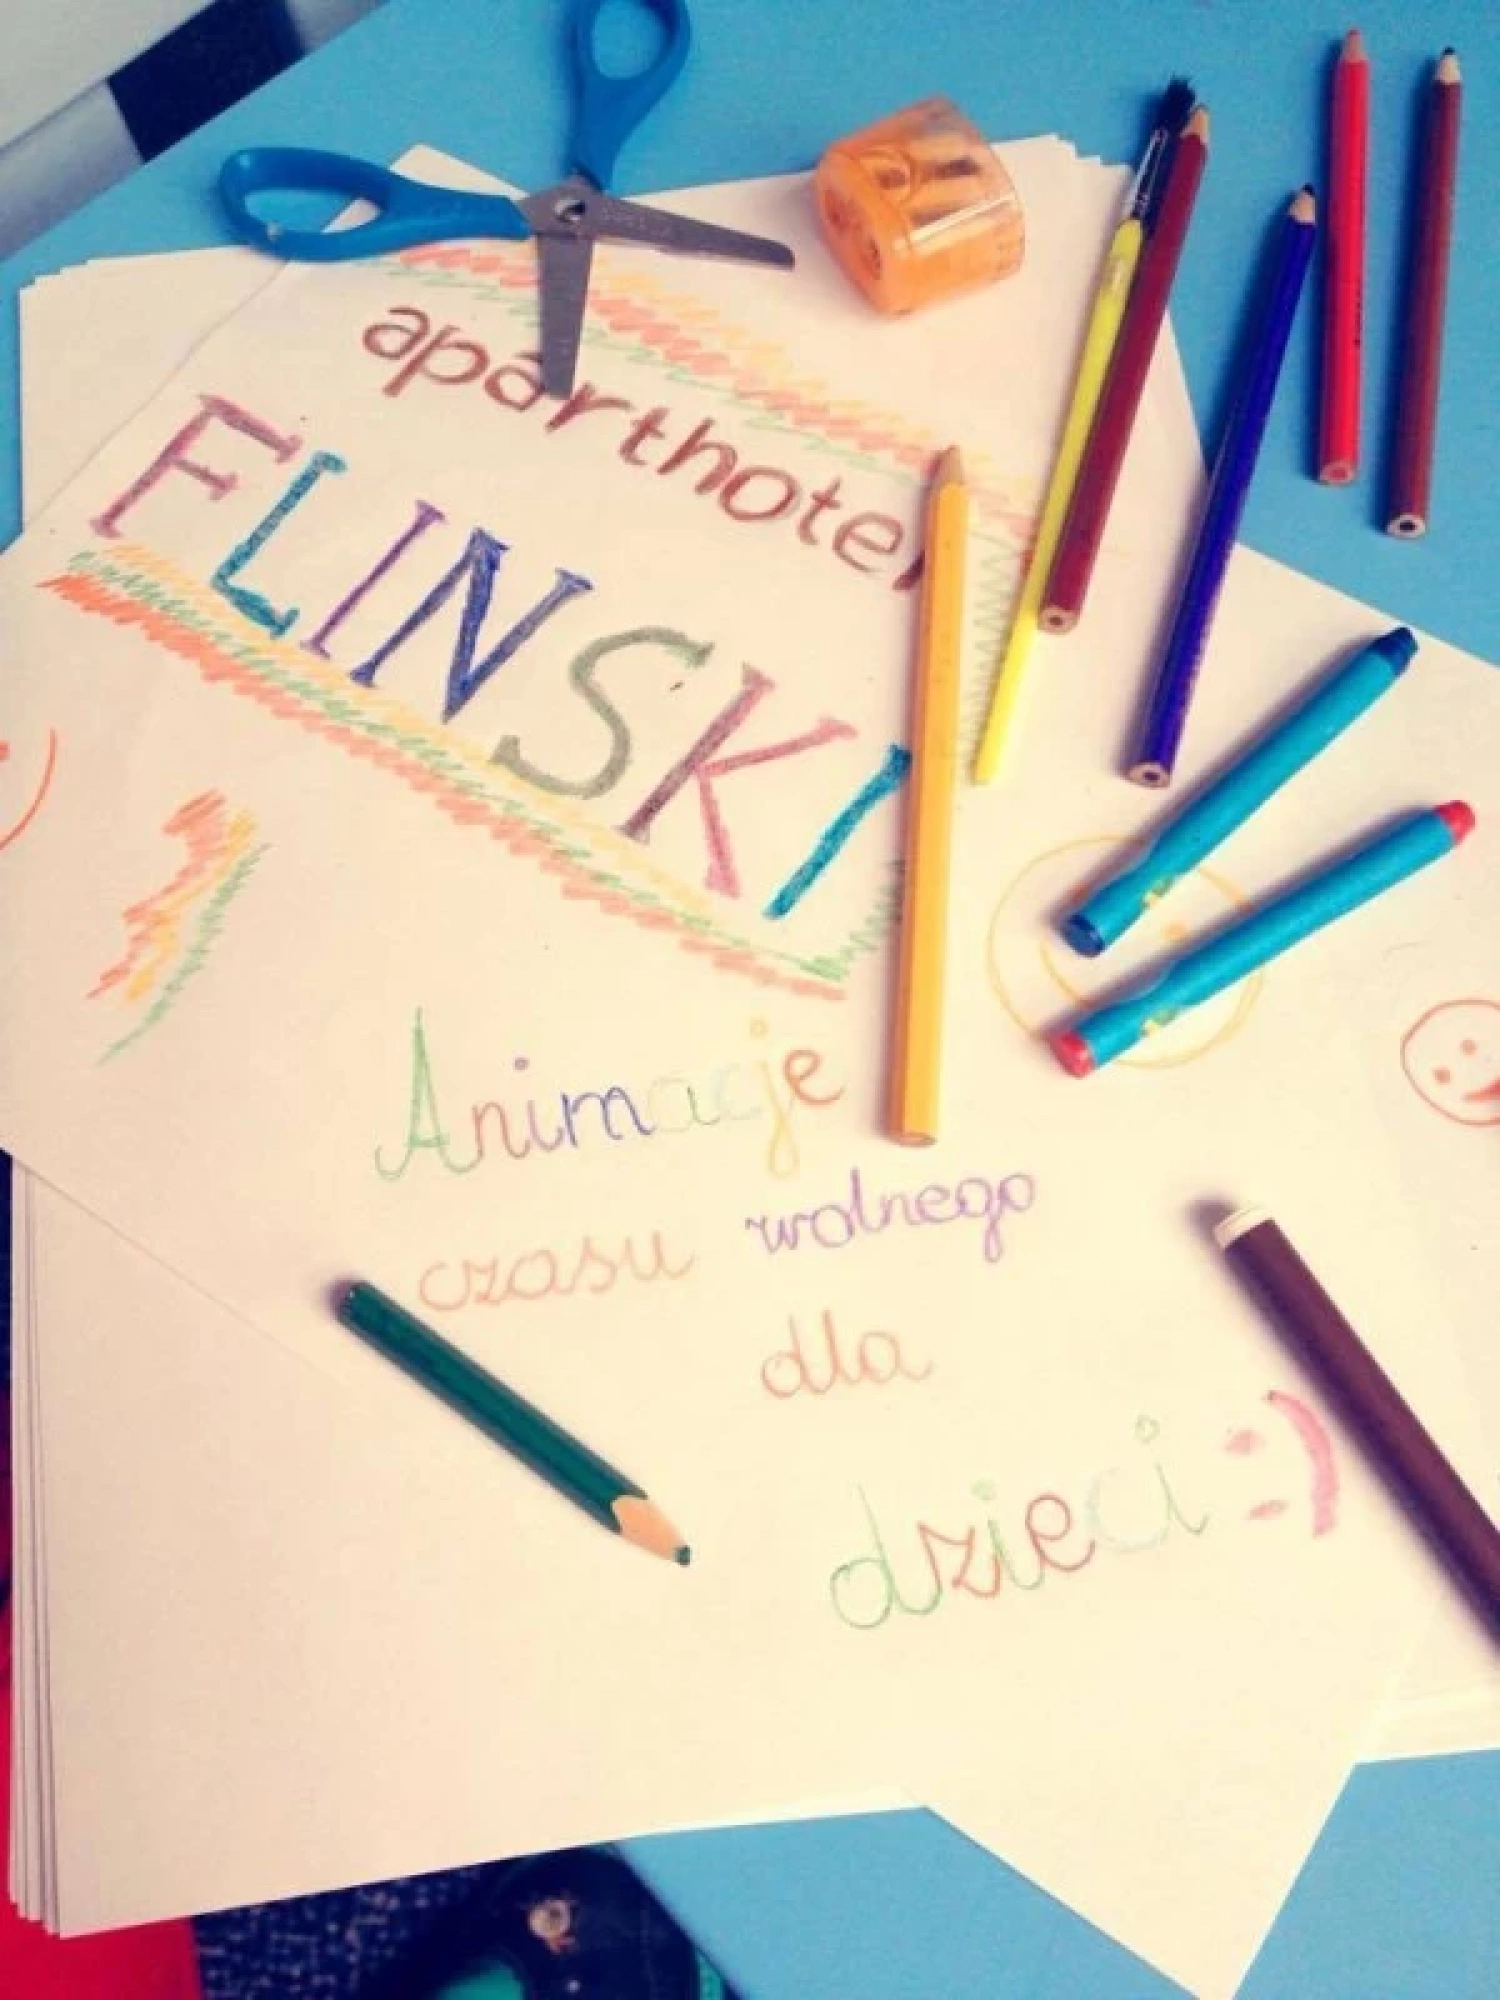 aparthotel
FLINSKI
Animacje
czasu wolnego
dla
dzieci :)